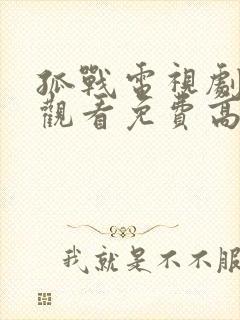 孤戰電視劇
觀看免費高
我就是不不服